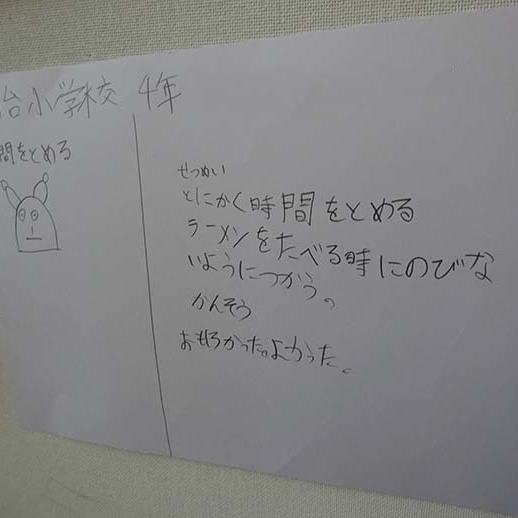 台小学校 4年
間をとめる
せつめい
とにかく時間をとめる
ラーメンをたべる時にのびな
いようにつかう。
かんそう
おもろかった。よかった。